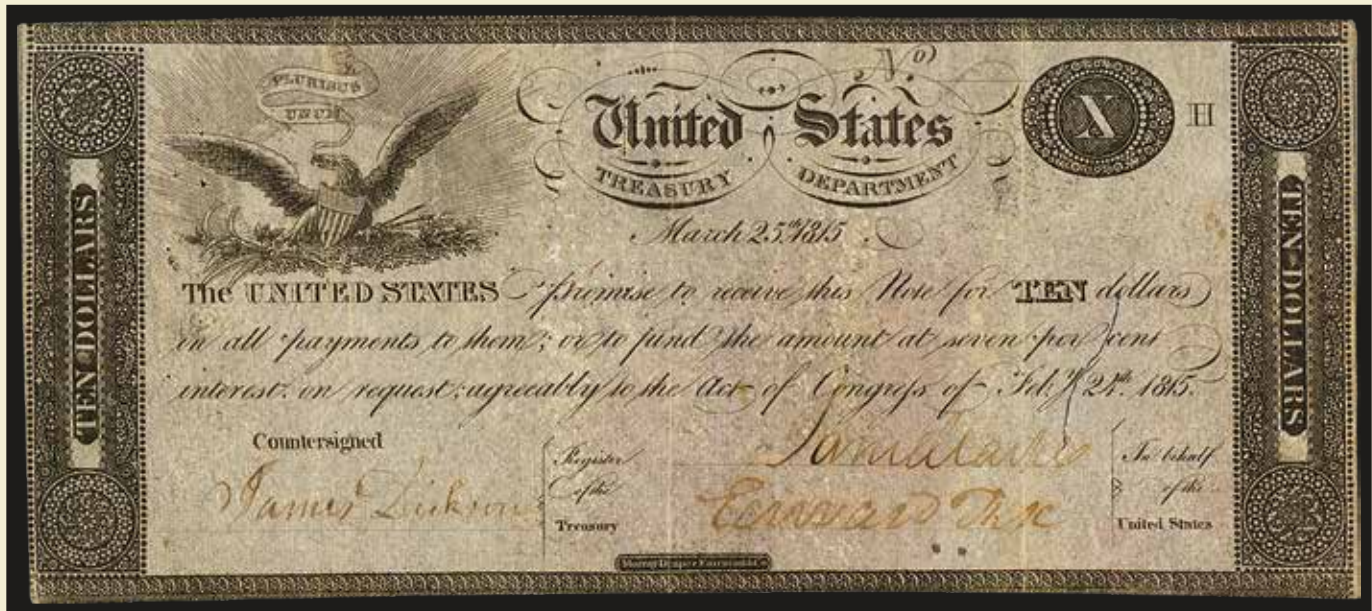 PLURIBUS
UNUM
No
United States
TREASURY DEPARTMENT
X
H
March 25th 1815
TEN DOLLARS
TEN DOLLARS
The UNITED STATES promise to receive this Note for TEN dollars
in all payments to them; or to fund the amount at seven per cent
interest, on request; agreeably to the Act of Congress of Feb.y 24th. 1815.
Countersigned
James Dickson
Register
of the
Treasury
In behalf
of the
United States
Murray Draper Fairman & Co